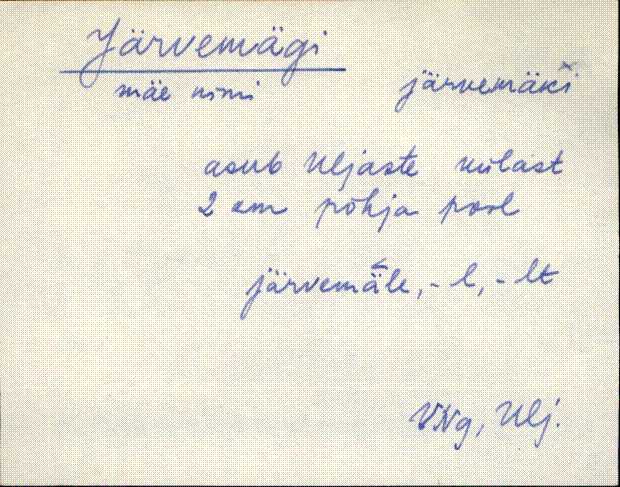 Järvemägi
mäe nimi järvemäkì
asub Uljaste külast
2 km põhja pool
järvemäle, -l, -lt
VNg, Ulj.